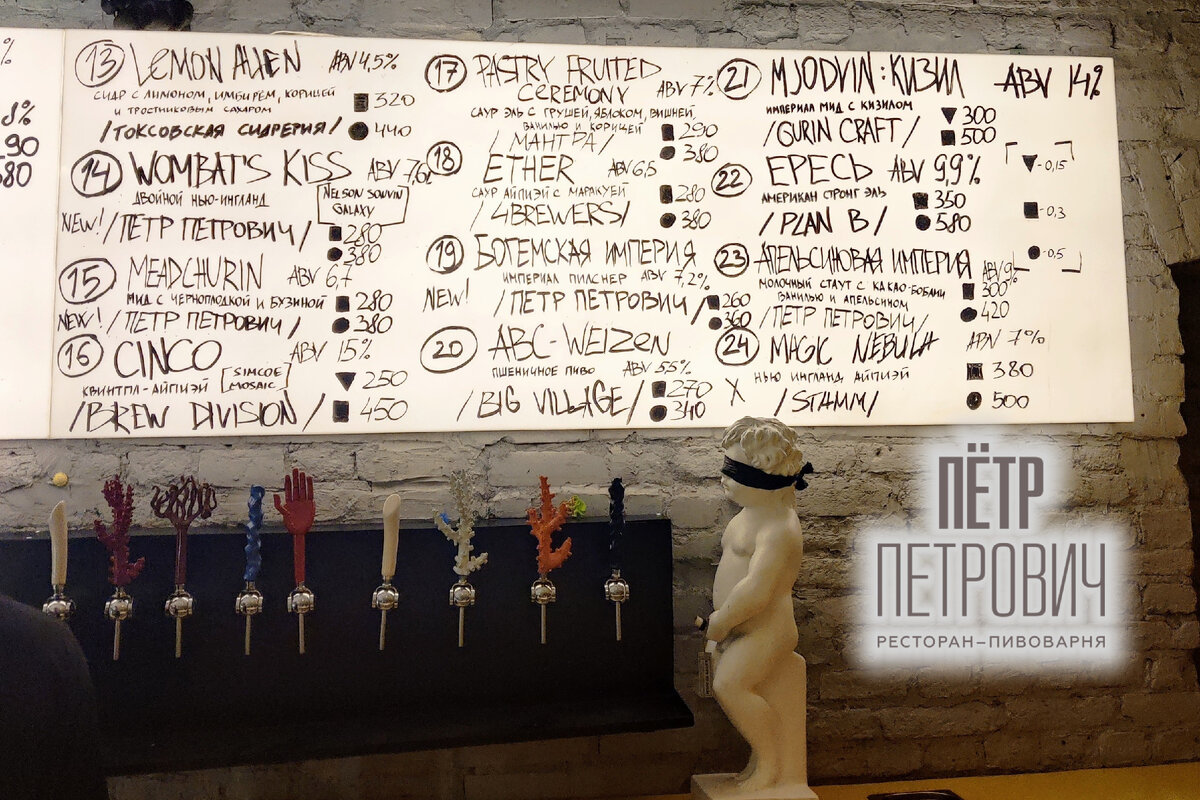 %
8%
90
580
13 LEMON ALIEN ABV 4,5%
СИДР С ЛИМОНОМ, ИМБИРЁМ, КОРИЦЕЙ
И ТРОСТНИКОВЫМ САХАРОМ 320
/ТОКСОВСКАЯ СИДРЕРИЯ/ 440
14 WOMBAT'S KISS ABV 7,6%
ДВОЙНОЙ НЬЮ-ИНГЛАНД
NELSON SOUVIN
GALAXY
NEW! /ПЁТР ПЕТРОВИЧ/ 280
380
15 MEADCHURIN ABV 6,7
МИД С ЧЕРНОПЛОДКОЙ И БУЗИНОЙ 280
NEW! /ПЁТР ПЕТРОВИЧ/ 380
16 CINCO ABV 15%
КВИНТПЛ-АЙПИЭЙ
SIMCOE
MOSAIC
250
/BREW DIVISION/ 450
17 PASTRY FRUITED
CEREMONY ABV 7%
САУР ЭЛЬ С ГРУШЕЙ, ЯБЛОКОМ, ВИШНЕЙ,
ВАНИЛЬЮ И КОРИЦЕЙ 290
/МАНТРА/ 380
18 ETHER ABV 6,5
САУР АЙПИЭЙ С МАРАКУЕЙ 280
/4BREWERS/ 380
19 БОГЕМСКАЯ ИМПЕРИЯ
ИМПЕРИАЛ ПИЛСНЕР ABV 7,2%
NEW! /ПЁТР ПЕТРОВИЧ/ 260
360
20 ABC-WEIZEN
ПШЕНИЧНОЕ ПИВО ABV 5,5%
270
/BIG VILLAGE/ 340
21 MJODVIN: КИЗИЛ ABV 14%
ИМПЕРИАЛ МИД С КИЗИЛОМ 300
/GURIN CRAFT/ 500
22 ЕРЕСЬ ABV 9,9%
АМЕРИКАН СТРОНГ ЭЛЬ 350
/PLAN B/ 580
23 АПЕЛЬСИНОВАЯ ИМПЕРИЯ ABV 9%
МОЛОЧНЫЙ СТАУТ С КАКАО-БОБАМИ 300
ВАНИЛЬЮ И АПЕЛЬСИНОМ
/ПЁТР ПЕТРОВИЧ/ 420
24 MAGIC NEBULA ABV 7%
X НЬЮ ИНГЛАНД АЙПИЭЙ 380
/ST4MM/ 500
-0,15
-0,3
-0,5
ПЁТР
ПЕТРОВИЧ
РЕСТОРАН–ПИВОВАРНЯ